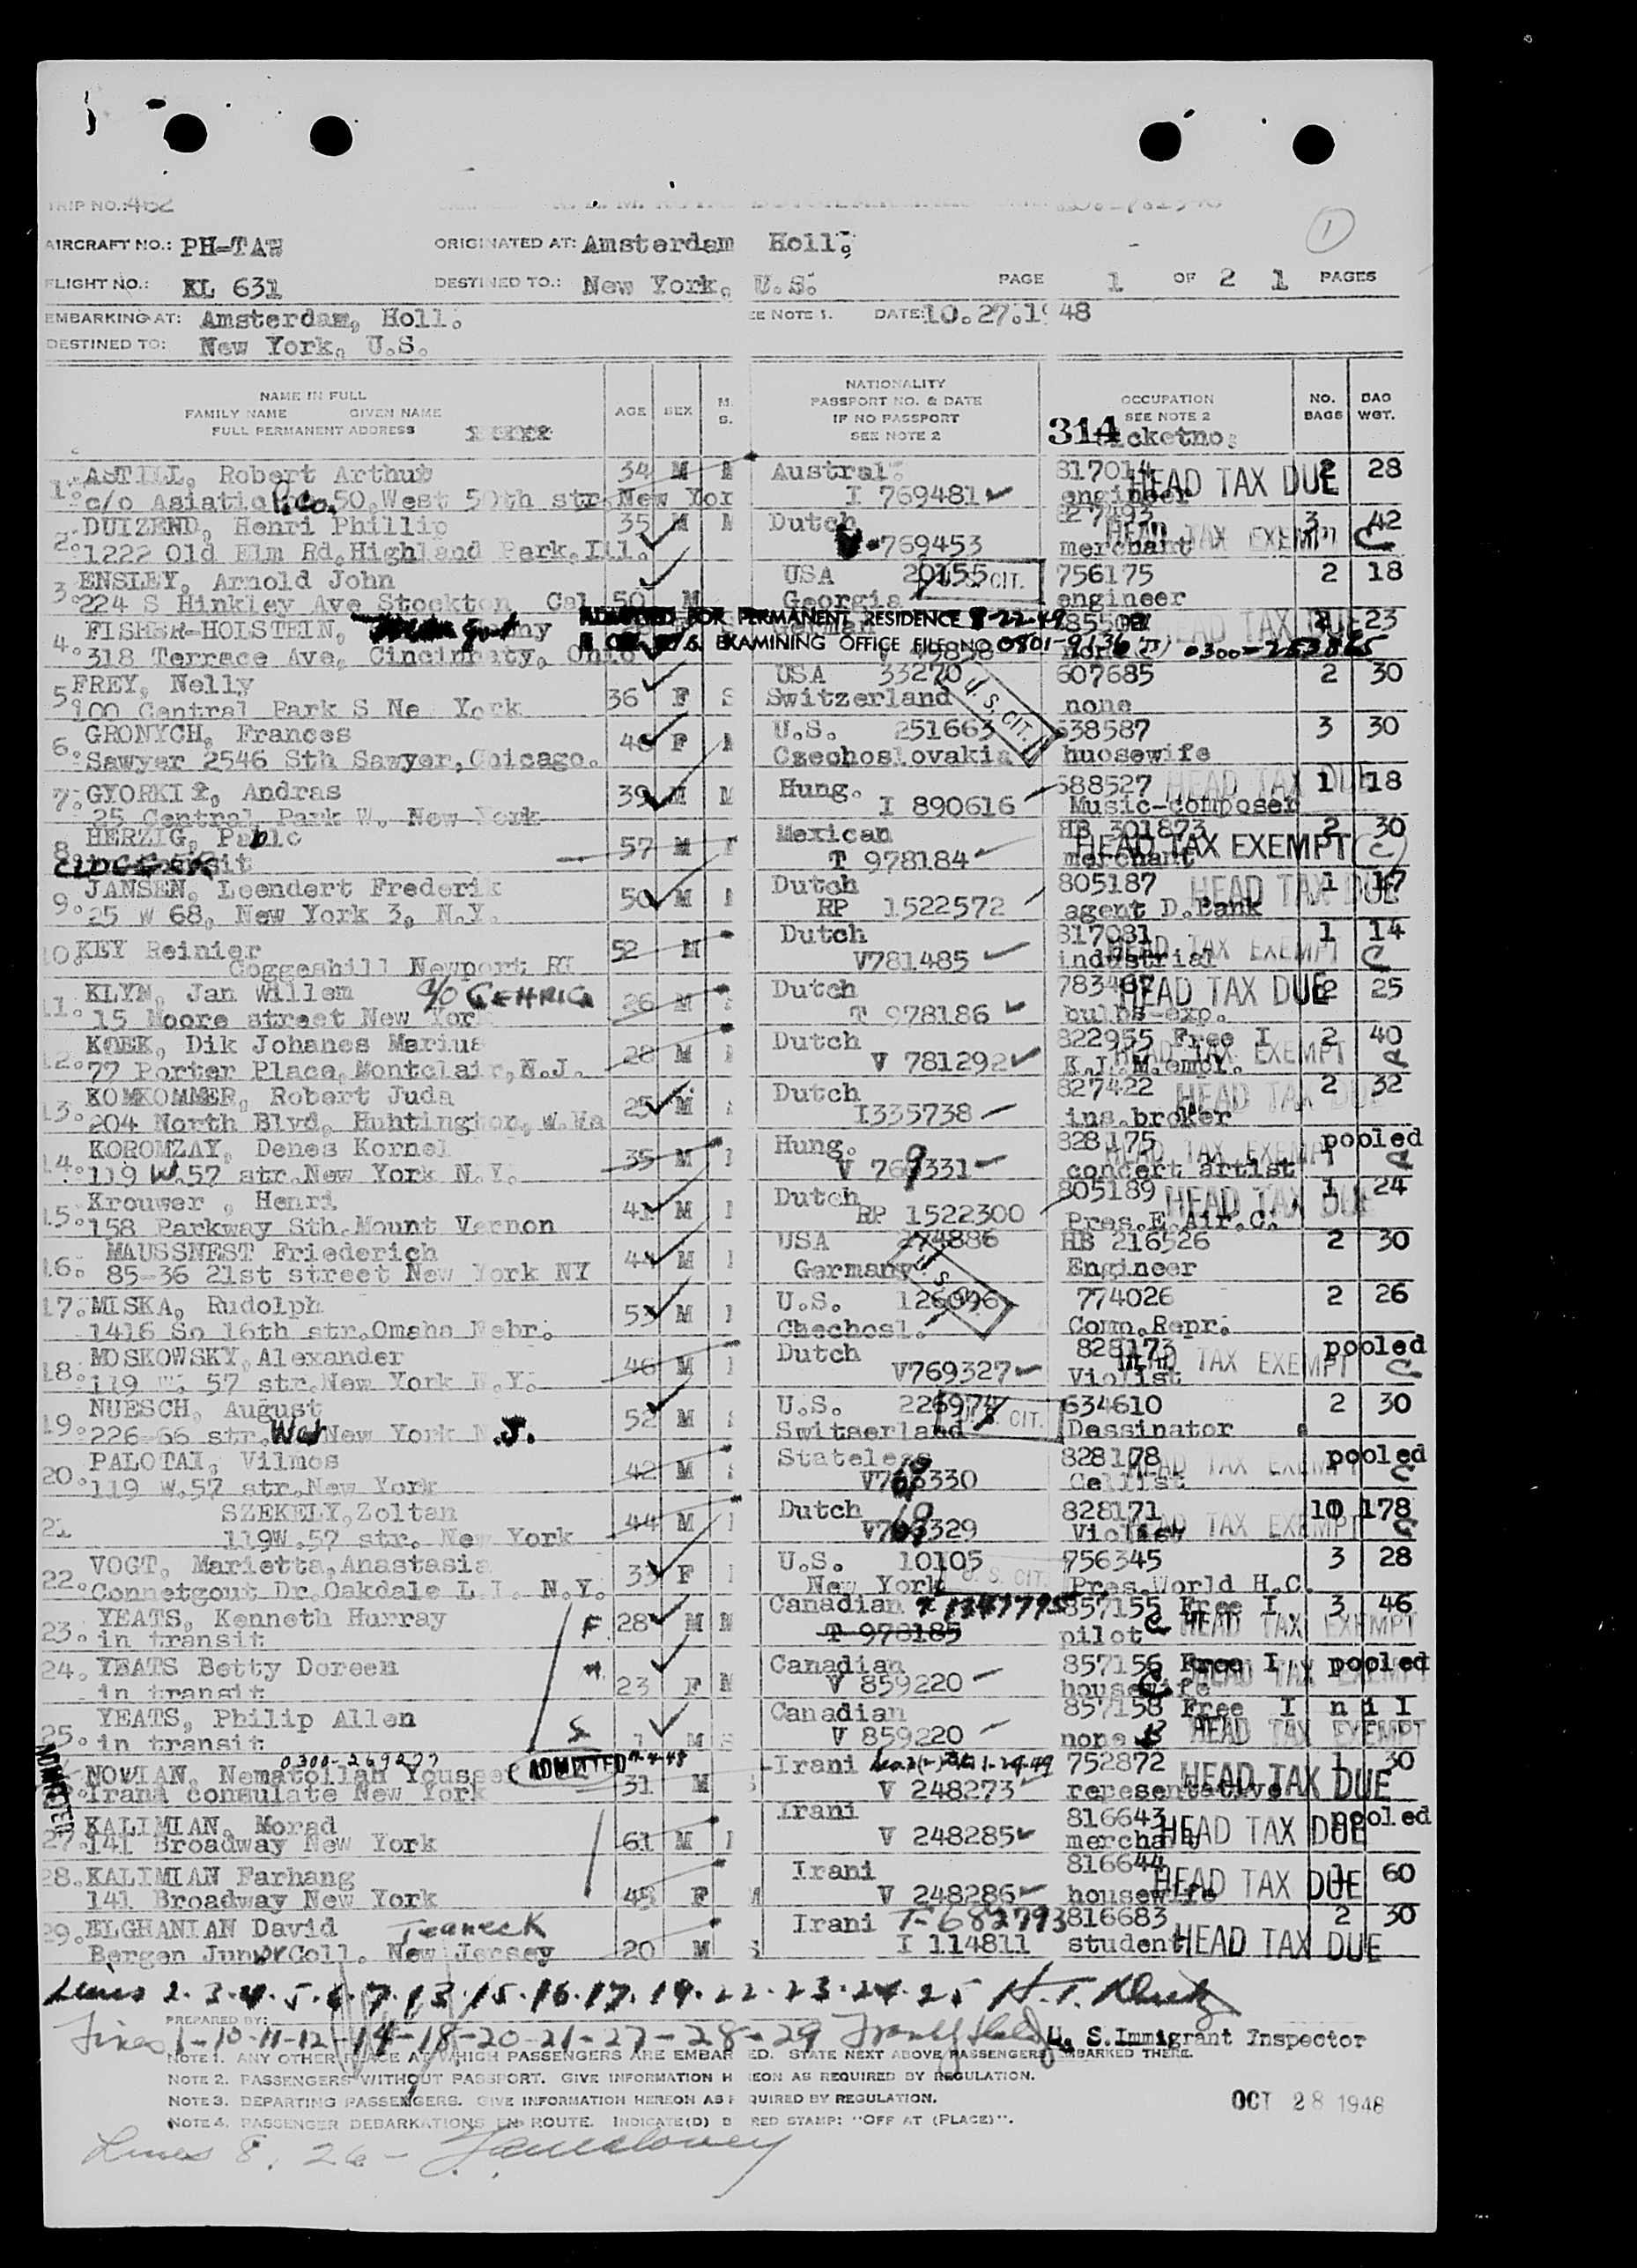 TRIP NO.: 462
AIRCRAFT NO.: PH-TAW ORIGINATED AT: Amsterdam Holl. 1
FLIGHT NO.: KL 631 DESTINED TO.: New York, U.S. PAGE 1 OF 2 1 PAGES
EMBARKING AT: Amsterdam, Holl. EE NOTE 1. DATE: 10.27.1948
DESTINED TO: New York, U.S.
NAME IN FULL
FAMILY NAME GIVEN NAME
FULL PERMANENT ADDRESS
AGE SEX M. S.
NATIONALITY
PASSPORT NO. & DATE
IF NO PASSPORT
SEE NOTE 2
OCCUPATION
SEE NOTE 2
314 icketno.
NO. BAGS
BAG WGT.
1. ASTILL, Robert Arthur 34 M M Austral. 817014 HEAD TAX DUE 2 28
c/o Asiatic P.Co. 50 West 50th str. New Yor I 769481 engineer
2. DUIZEND, Henri Phillip 35 M M Dutch 827493 HEAD TAX EXEMPT 3 42
1222 Old Elm Rd. Highland Park, Ill. 769453 merchant C
3. ENSLEY, Arnold John 50 M USA 20155 U.S. CIT. 756175 2 18
224 S Hinkley Ave Stockton Cal Georgia engineer
4. FISHER-HOLSTEIN, ADMITTED FOR PERMANENT RESIDENCE 8-22-49 HEAD TAX DUE 23
318 Terrace Ave, Cincinnaty, Ohio EXAMINING OFFICE FILE NO 0300-252865
5. FREY, Nelly 36 F S USA 33270 U.S. CIT. 607685 2 30
100 Central Park S Ne York Switzerland none
6. GRONYCH, Frances F U.S. 251663 638587 3 30
Sawyer 2546 Sth Sawyer, Chicago. Czechoslovakia huosewife
7. GYORKI, Andras 39 M M Hung. 588527 HEAD TAX DUE 1 18
25 Central Park W. New York I 890616 Music-composer
8. HERZIG, Pablo 57 M Mexican HB 301873 HEAD TAX EXEMPT 2 30
T 978184 merchant C
9. JANSEN, Leendert Frederik 50 M Dutch 805187 HEAD TAX DUE 1 17
25 W 68, New York 3, N.Y. RP 1522572 agent D.Bank
10. KEY Reinier 52 M Dutch 817081 HEAD TAX EXEMPT 1 14
Coggeshill Newport RI V781485 industrial C
11. KLYN, Jan Willem C/O GEHRIG 26 M Dutch 783467 HEAD TAX DUE 2 25
15 Moore street New York T 978186 bulbs-exp.
12. KOEK, Dik Johanes Marius 28 M Dutch 822955 Free I HEAD TAX EXEMPT 2 40
77 Porter Place, Montclair, N.J. V 781292 K.L.M. empl.
13. KOMKOMMER, Robert Juda 25 M Dutch 827422 HEAD TAX DUE 2 32
204 North Blvd, Huhtington, W.Wa I335738 ins.broker
14. KOROMZAY, Denes Kornel 35 M Hung. 828175 HEAD TAX EXEMPT pooled
119 W.57 str. New York N.Y. V 769331 concert artist
15. Krouwer, Henri 41 M Dutch 805189 HEAD TAX DUE 1 24
158 Parkway Sth. Mount Vernon RP 1522300 Pres.E.Air.C.
16. MAUSSNEST Friederich 44 M USA 274886 U.S. HB 216526 2 30
85-36 21st street New York NY Germany Engineer
17. MISKA, Rudolph 53 M U.S. 126096 774026 2 26
1416 So 16th str. Omaha Nebr. Chechosl. Comp.Repr.
18. MOSKOWSKY, Alexander 46 M Dutch 828173 HEAD TAX EXEMPT pooled
119 W. 57 str. New York N.Y. V769327 Violist C
19. NUESCH, August 52 M U.S. 226974 U.S. CIT. 634610 2 30
226-66 str. New York N.J. Switserland Dessinator
20. PALOTAI, Vilmos 42 M Stateless 828178 HEAD TAX EXEMPT pooled
119 W.57 str. New York V769330 Cellist C
21 SZEKELY, Zoltan 44 M Dutch 828171 HEAD TAX EXEMPT 10 178
119W.57 str. New York V769329 Violist C
22. VOGT, Marietta, Anastasia 33 F U.S. 10105 U.S. CIT. 756345 3 28
Connetqout Dr. Oakdale L.I. N.Y. New York Pres.World H.C.
23. YEATS, Kenneth Hurray F 28 M M Canadian 857155 Free I 3 46
in transit T 978185 pilot C HEAD TAX EXEMPT
24. YEATS Betty Doreen 23 F M Canadian 857156 Free I pooled
in transit V 859220 housewife HEAD TAX EXEMPT
25. YEATS, Philip Allen 1 M S Canadian 857158 Free I n i l
in transit V 859220 none HEAD TAX EXEMPT
ADMITTED 0300-269277 ADMITTED
NOVIAN, Nematollah Yousse 31 M S Irani 752872 HEAD TAX DUE 1 30
Irana consulate New York V 248273 repesentative
27. KALIMIAN, Morad 61 M Irani 816643 HEAD TAX DUE pooled
141 Broadway New York V 248285 merchant
28. KALIMIAN Farhang 45 F M Irani 816644 HEAD TAX DUE 1 60
141 Broadway New York V 248286 housewife
29. ELGHANIAN David Teaneck 20 M S Irani T-682793 816683 HEAD TAX DUE 2 30
Bergen Junior Coll. New Jersey I 114811 student
Lines 2.3.4.5.6.7.13.15.16.17.19.22.23.24.25 H.T.
PREPARED BY:
Lines 1-10-11-12-14-18-20-21-27-28-29 U. S. Immigrant Inspector
NOTE 1. ANY OTHER PLACE AT WHICH PASSENGERS ARE EMBAR ED. STATE NEXT ABOVE PASSENGERS EMBARKED THERE.
NOTE 2. PASSENGERS WITHOUT PASSPORT. GIVE INFORMATION H EON AS REQUIRED BY REGULATION.
NOTE 3. DEPARTING PASSENGERS. GIVE INFORMATION HEREON AS R QUIRED BY REGULATION.
OCT 28 1948
NOTE 4. PASSENGER DEBARKATIONS EN ROUTE. INDICATE(D) B RED STAMP: "OFF AT (PLACE)".
Lines 8, 26 -